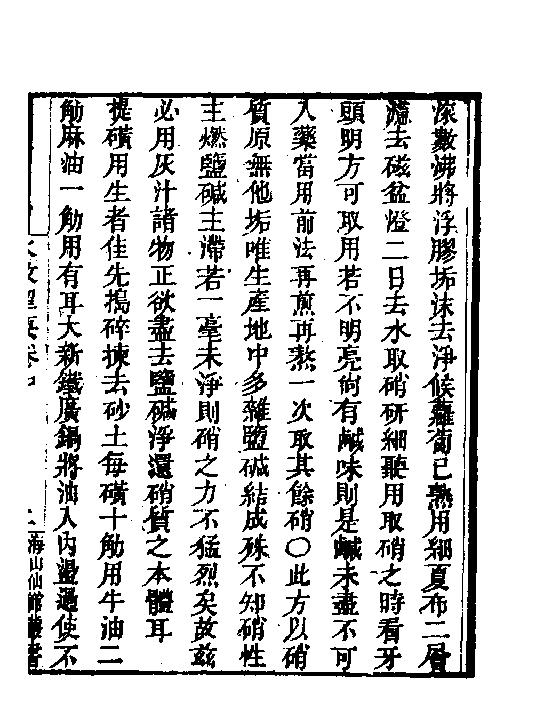 滾數沸將浮膠垢沫去淨候蘿蔔已熟用細夏布二層
濾去磁盆澄二日去水取硝研細聽用取硝之時看牙
頭明方可取用若不明亮尙有鹹味則是鹹未盡不可
入藥當用前法再煎再熬一次取其餘硝○此方以硝
質原無他垢唯生產地中多雜鹽碱結成殊不知硝性
主燃鹽碱主滯若一毫未淨則硝之力不猛烈矣故兹
必用灰汁諸物正欲盡去鹽碱淨還硝質之本體耳
提磺用生者佳先搗碎揀去砂土每磺十觔用牛油二
觔麻油一觔用有耳大新鐵廣鍋將油入內盪過使不
火攻挈要卷中
海山仙館叢書